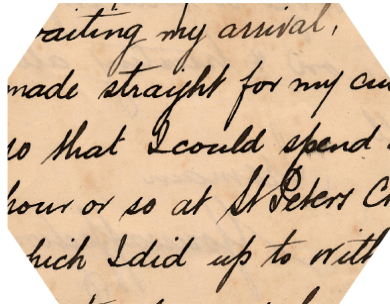 waiting my arrival,
made straight for my cu
so that I could spend
hour or so at St Peters C
which I did up to with